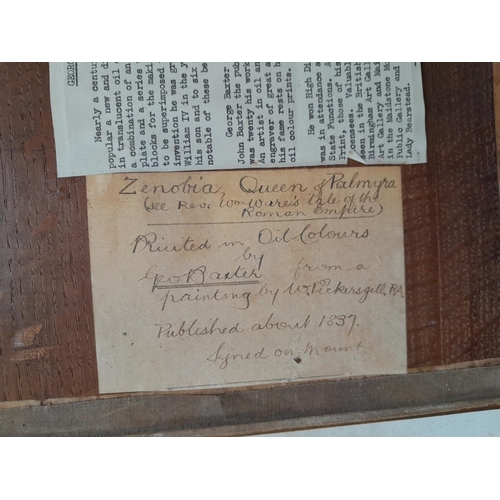 GEOR
Nearly a centur
popular a new and d
in translucent oil
a combination of an
plate and a series
blocks for the maki
to be superimposed
invention he was gr
William IV in the y
his son and to six
notable of these be
George Baxter
John Baxter the pub
was twenty his work
An artist in oil an
engraver of great
his fame rests on h
oil colour prints.
He won High Di
was in attendance
State Functions. A
Print, those of his
Processes. Valuabl
seen in the British
Birmingham Art Gall
Art Gallery and Mai
in the Maidstone Mu
Public Gallery and
Lady Bearstead.
Zenobia, Queen of Palmyra
(see Rev. Wm Ware's tale of the
Roman Empire)
Printed in Oil Colours
by
Geo Baxter from a
painting by W. Pickersgill, RA
Published about 1837.
Signed on Mount